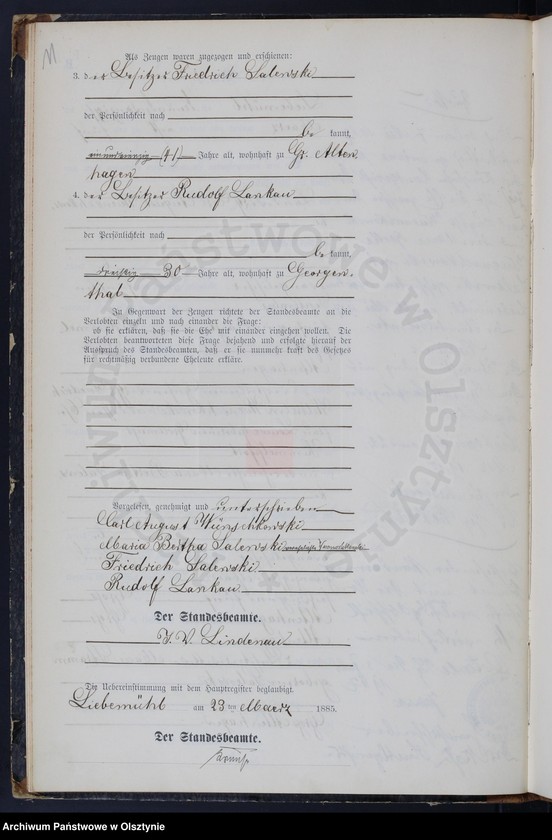 Als Zeugen waren zugezogen und erschienen:
3. der Besitzer Friedrich Salewski
der Persönlichkeit nach
be kannt,
einundvierzig (41) Jahre alt, wohnhaft zu Gr. Alten
hagen
4. der Besitzer Rudolf Lankau
der Persönlichkeit nach
be kannt,
dreißig 30 Jahre alt, wohnhaft zu Georgen-
thal
In Gegenwart der Zeugen richtete der Standesbeamte an die
Verlobten einzeln und nach einander die Frage:
ob sie erklären, daß sie die Ehe mit einander eingehen wollen. Die
Verlobten beantworteten diese Frage bejahend und erfolgte hierauf der
Ausspruch des Standesbeamten, daß er sie nunmehr kraft des Gesetzes
für rechtmäßig verbundene Eheleute erkläre.
Vorgelesen, genehmigt und unterschrieben
Carl August Wünschkowski
Maria Bertha Salewski
Friedrich Salewski
Rudolf Lankau
Der Standesbeamte.
J. V. Lindenau
Die Uebereinstimmung mit dem Hauptregister beglaubigt.
Liebemühl am 23 ten Maerz 1885.
Der Standesbeamte.
Archiwum Państwowe w Olsztynie
Archiwum Państwowe w Olsztynie